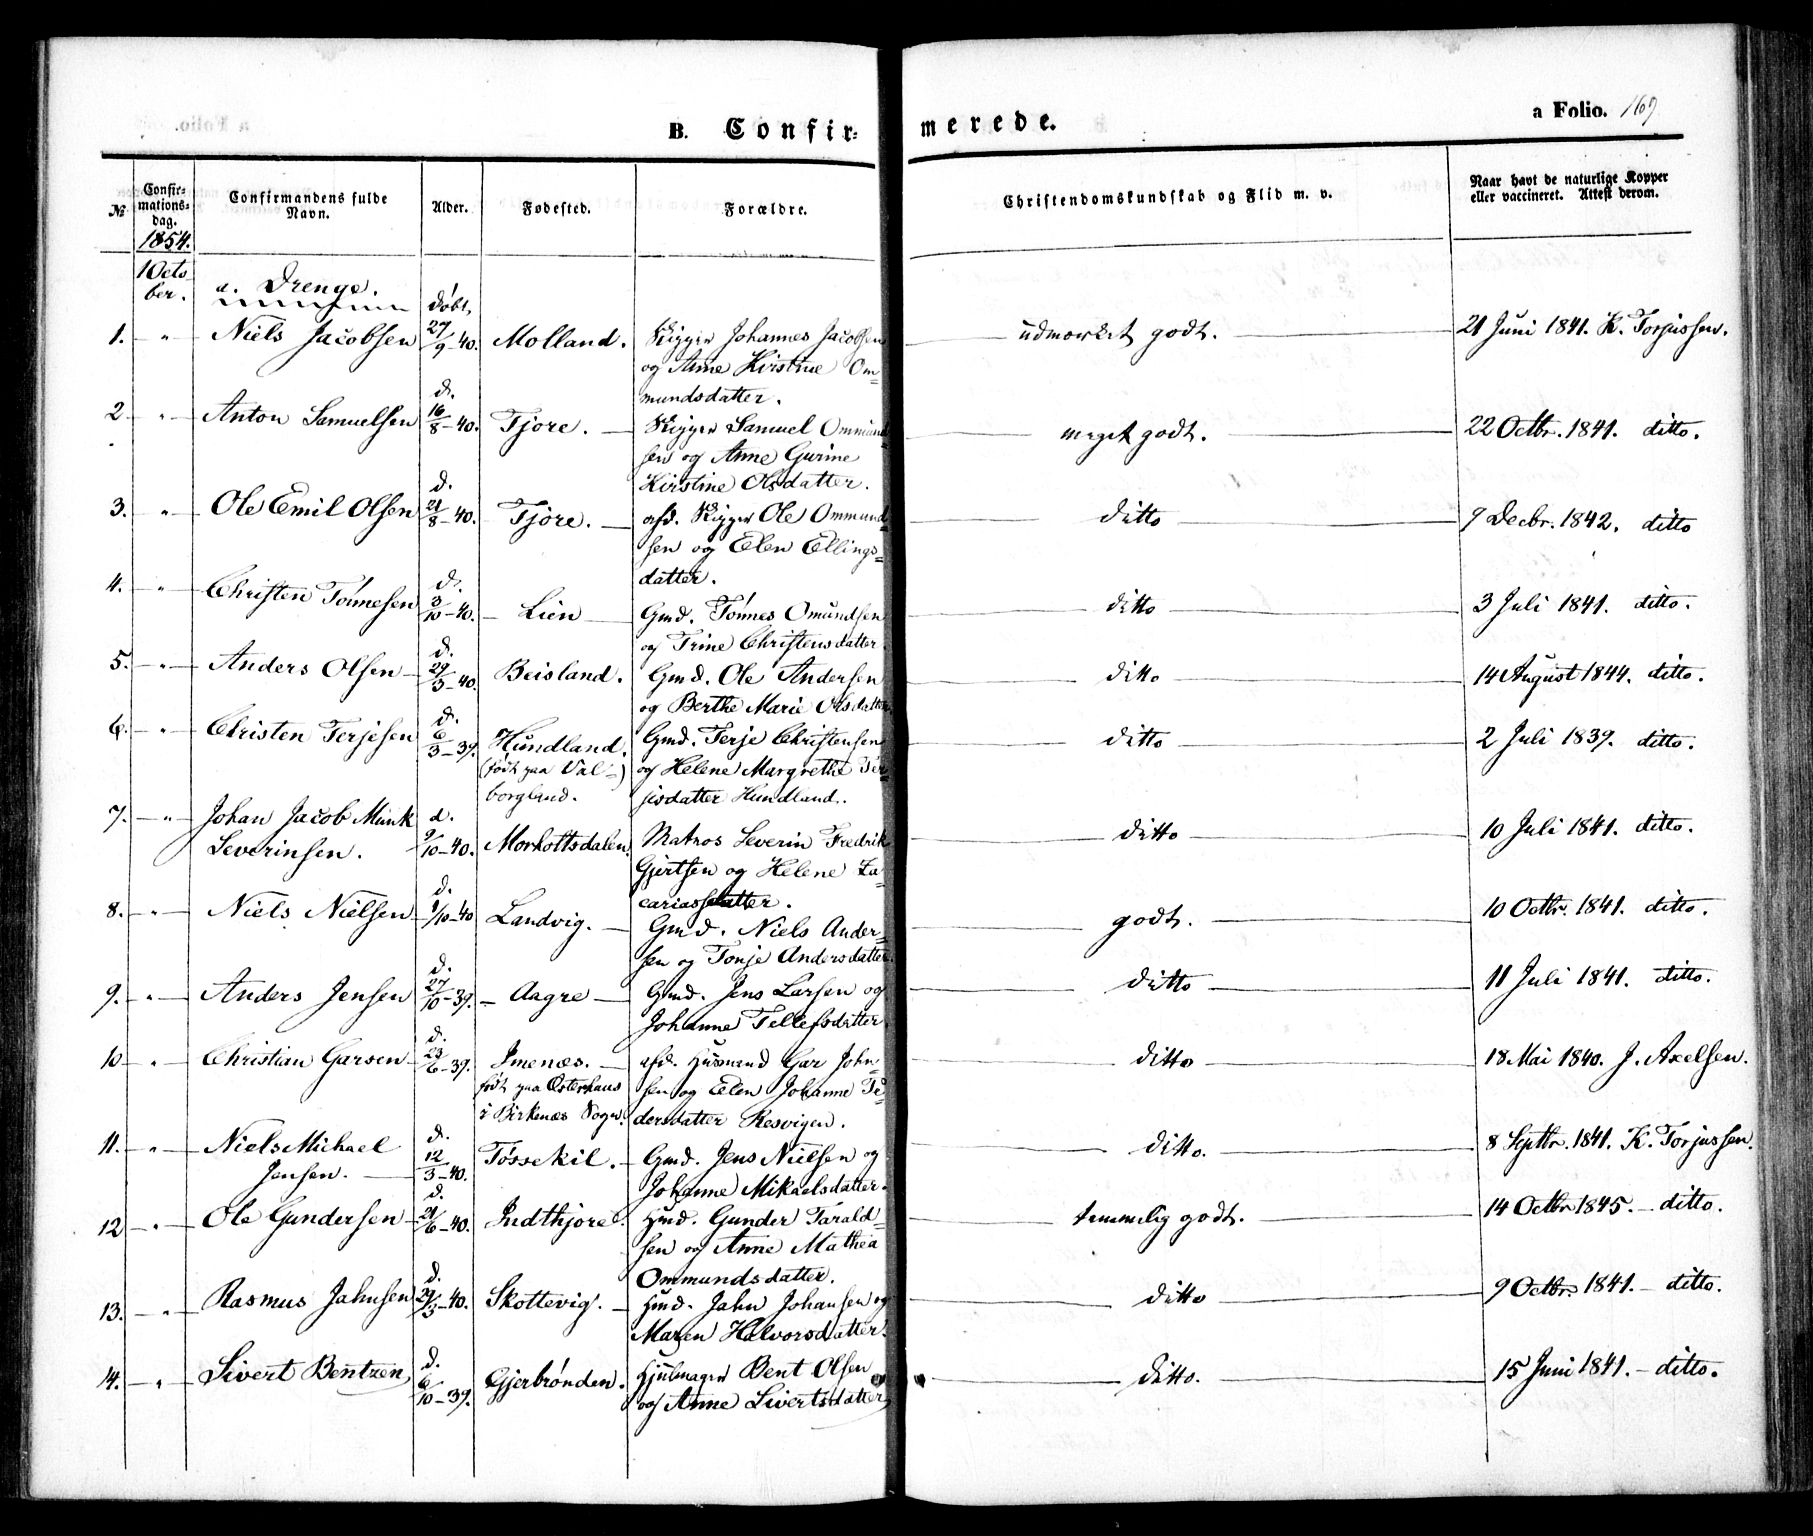 B. Confir-
merede.
a Folio. 167
№
Confir-
mations-
dag.
1854.
Confirmandens fulde
Navn.
Alder.
Fødested.
Forældre.
Christendomskundskab og Flid m. v.
Naar havt de naturlige Kopper
eller vaccineret. Attest derom.
1 Octo
ber.
a. Drenge.
døbt
1. " Niels Jacobsen 27/9-40. Molland. Skipper Johannes Jacobsen udmærket godt. 21 Juni 1841. K. Torjussen.
og Anne Kirstine Om-
mundsdatter.
2. " Anton Samuelsen d. 16/8-40. Fjøre. Skipper Samuel Ommund- meget godt. 22 Octbr. 1841. ditto.
sen og Anne Gurine
Kirstine Olsdatter.
3. " Ole Emil Olsen d. 21/8-40. Fjøre. afd. Skipper Ole Ommund- ditto 9 Decbr. 1842. ditto
sen og Elen Ellings-
datter.
4. " Christen Tønnesen d. 3/10-40. Lien Gmd. Tønnes Omundsen ditto 3 Juli 1841. ditto.
og Trine Christensdatter
5. " Anders Olsen d. 29/3-40. Beisland. Gmd. Ole Andersen ditto 14 August 1844. ditto.
og Berthe Marie Olsdatter
6. " Christen Terjesen d. 6/3-39. Hundland. Gmd. Terje Christensen ditto 2 Juli 1839. ditto.
(født paa Val-) og Helene Margrethe Ter-
borgland. jesdatter Hundland.
7. " Johan Jacob Munk d. 9/10-40. Morholtsdalen. Matros Severin Fredrik ditto 10 Juli 1841. ditto.
Severinsen. Gjertsen og Helene Za-
cariasdatter.
8. " Niels Nielsen d. 1/10-40 Landvig. Gmd. Niels Ander- godt. 10 Octbr. 1841. ditto.
sen og Tonje Andersdatter
9. " Anders Jensen d. 27/10-39. Aagre Gmd. Jens Larsen og ditto 11 Juli 1841. ditto.
Johanne Tellefsdatter
10 " Christian Garsen d. 23/6-39. Imenæs. afd. Husmand Gar John- ditto 18 Mai 1840. J. Axelsen.
født paa Østerhaus sen og Elen Johanne Pe-
i Birkenæs Sogn. dersdatter Resvigen.
11. " Niels Michael d. 12/3-40. Tøssekil. Gmd. Jens Nielsen og ditto. 8 Septbr. 1841. K. Torjussen.
Jensen. Johanne Mikaelsdatter.
12 " Ole Gundersen d. 21/6-40. Indthjore. Hmd. Gunder Tarald- temmelig godt. 14 Octbr 1845. ditto.
sen og Anne Mathea
Ommundsdatter.
13. " Rasmus Jahnsen d. 29/3-40. Skottevig. Hmd. Jahn Johansen og ditto 9 Octbr. 1841. ditto.
Maren Halvorsdatter.
14. " Sivert Bentzen d. 6/10-39. Gjerbrønden. Hjulmager Bent Olsen ditto. 15 Juni 1841. ditto.
og Anne Sivertsdatter